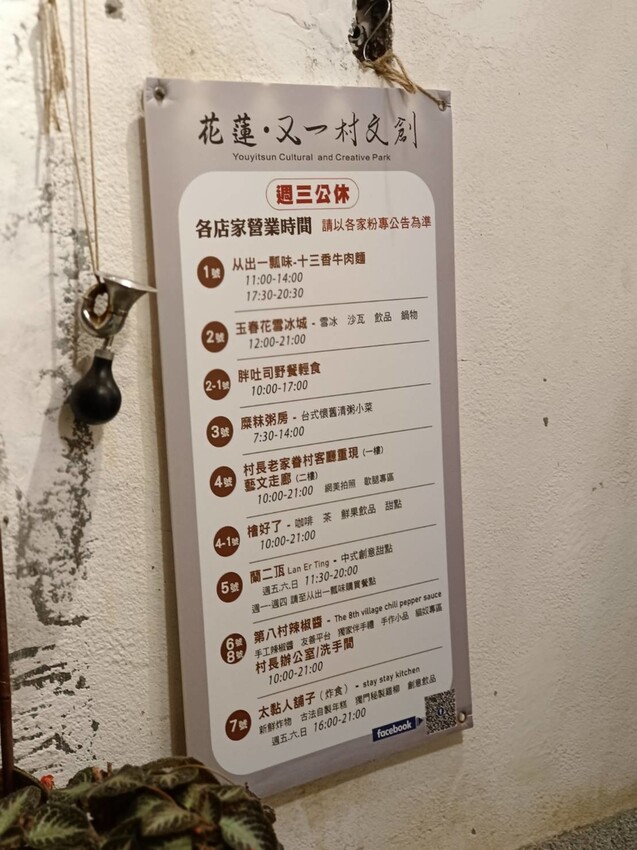 花蓮·又一村文創
Youyitsun Cultural and Creative Park
週三公休
各店家營業時間 請以各家粉專公告為準
1號 从出一瓢味-十三香牛肉麵
11:00-14:00
17:30-20:30
2號 玉春花雪冰城 - 雪冰 沙瓦 飲品 鍋物
12:00-21:00
2-1號 胖吐司野餐輕食
10:00-17:00
3號 糜粖粥房 - 台式懷舊清粥小菜
7:30-14:00
4號 村長老家眷村客廳重現 (一樓)
藝文走廊 (二樓)
10:00-21:00 網美拍照 歇腿專區
4-1號 檜好了 - 咖啡 茶 鮮果飲品 甜點
10:00-21:00
5號 蘭二㐳 Lan Er Ting - 中式創意甜點
週五.六.日 11:30-20:00
週一-週四 請至从出一瓢味購買餐點
6號 8號 第八村辣椒醬 - The 8th village chili pepper sauce
手工辣椒醬 友善平台 獨家伴手禮 手作小品 貓奴專區
村長辦公室/洗手間
10:00-21:00
7號 太黏人舖子 (炸食) - stay stay kitchen
新鮮炸物 古法自製年糕 獨門秘製雞柳 創意飲品
週五.六.日 16:00-21:00
facebook